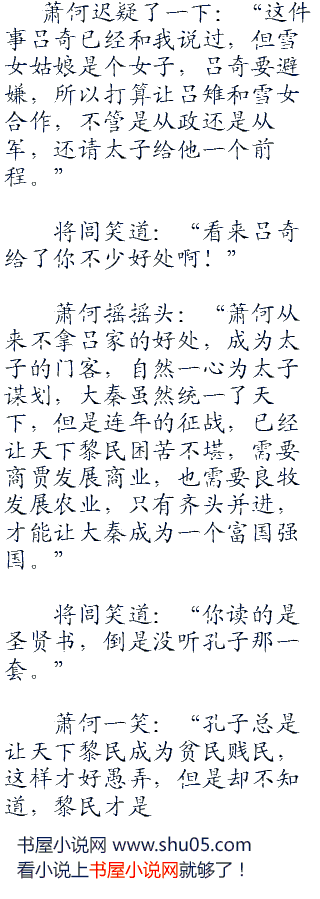 萧何迟疑了一下：“这件
事吕奇已经和我说过，但雪
女姑娘是个女子，吕奇要避
嫌，所以打算让吕雉和雪女
合作，不管是从政还是从
军，还请太子给他一个前
程。”
将闾笑道：“看来吕奇
给了你不少好处啊！”
萧何摇摇头：“萧何从
来不拿吕家的好处，成为太
子的门客，自然一心为太子
谋划，大秦虽然统一了天
下，但是连年的征战，已经
让天下黎民困苦不堪，需要
商贾发展商业，也需要良牧
发展农业，只有齐头并进，
才能让大秦成为一个富国强
国。”
将闾笑道：“你读的是
圣贤书，倒是没听孔子那一
套。”
萧何一笑：“孔子总是
让天下黎民成为贫民贱民，
这样才好愚弄，但是却不知
道，黎民才是
书屋小说网 www.shu05.com
看小说上书屋小说网就够了！